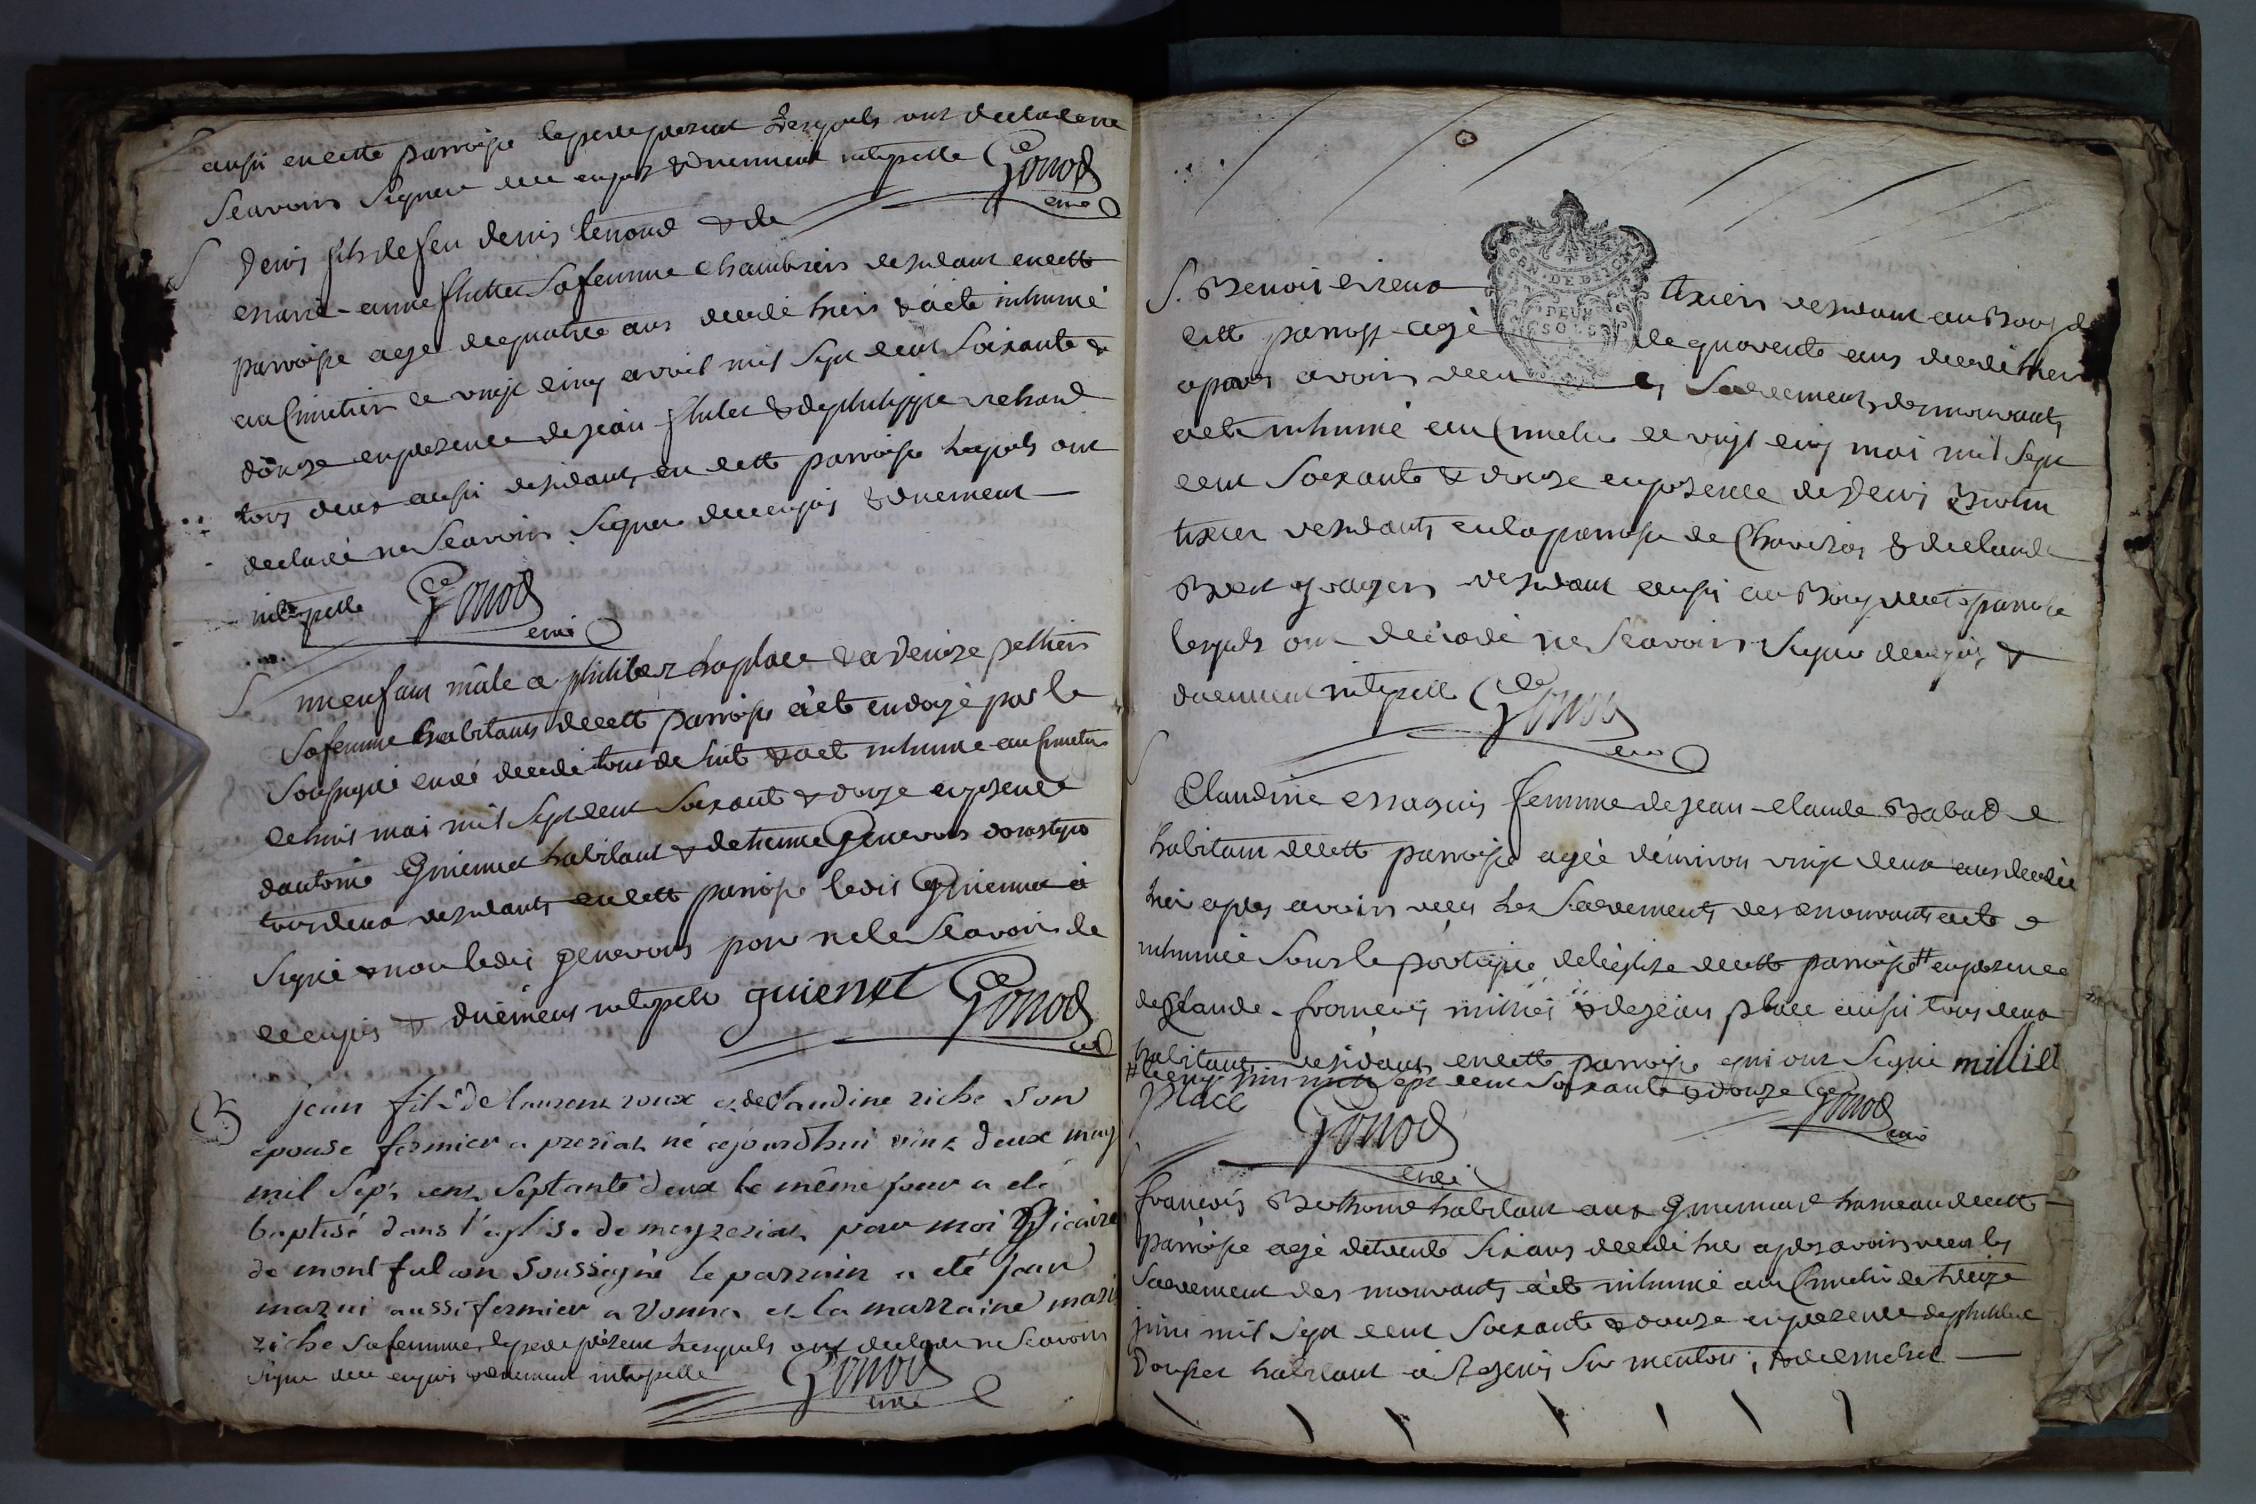 aussi en cette parroisse le pere present Lesquels ont declare ne
sçavoir signer de ce enquis & duement interpellé Gonod
curé
S Denis fils de feu denis & de
marie-anne flutet sa femme residant en cette
parroisse agé de quatre ans decedé hier & a été inhumé
au Cimetier ce vingt cinq avril mil sept cent soixante &
douze en presence de jean flutet & de philippe
tous deux aussi residants en cette parroisse lesquels ont
declaré ne sçavoir signer de ce enquis & duement
interpellé Gonod
curé
S un enfant mâle a philibert Laplace & a Denise
sa femme habitants de cette parroisse a été endoyé par le
soussigné curé decedé tout de suite & a été inhumé au Cimetier
le huit mai mil sept cent soixante & douze en presence
d'antoine Guienet habitant & d'etienne Genevois
tous deux residants en cette parroisse ledit Guienet a
signé & non ledit genevois pour ne le sçavoir de
ce enquis & duement interpellé guienet Gonod
curé
B jean fils de laurent roux & de Claudine riche son
epouse fermier a presiat né ajourdhui vint deux may
mil sept cent septante deux le même jour a eté
baptisé dans l'eglise de meyzeriat par moi Vicaire
de montfalcon soussigné le parrain a eté jean
aussi fermier a et la marraine marie
riche sa femme, le pere présent Lesquels ont declaré ne sçavoir
signer de ce enquis & duement interpellé Gonod
curé
GEN. DE DIJON
DEUX
SOLS
S. Benoit tixier residant au Bourg de
cette parroisse agé de quarente ans decedé hier
apres avoir reçu les Sacrements des mourants
a été inhumé au Cimetier le vingt cinq mai mil sept
cent soixante & douze en presence de Denis
tixier residants en la parroisse de & de claude
residant aussi au Bourg de cette parroisse
lesquels ont declaré ne sçavoir signer de ce enquis &
duement interpellé Gonod
curé
Claudine femme de jean-claude Babad
habitant de cette parroisse agée d'environ vingt deux ans decedée
hier apres avoir reçu les Sacrements des mourants a été
inhumée sous le portique de l'église de cette parroisse # en presence
de Claude-francois & de jean place aussi tous deux
habitants residants en cette parroisse qui ont signé milliet
# le juin mil sept cent soixante & douze Gonod
place Gonod curé
curé
francois habitant aux hameau de cette
parroisse agé de trente six ans decedé hier apres avoir reçu les
Sacrement des mourants a été inhumé au Cimetier le treize
juin mil sept cent soixante & douze en presence de philibert
habitant à St Denis